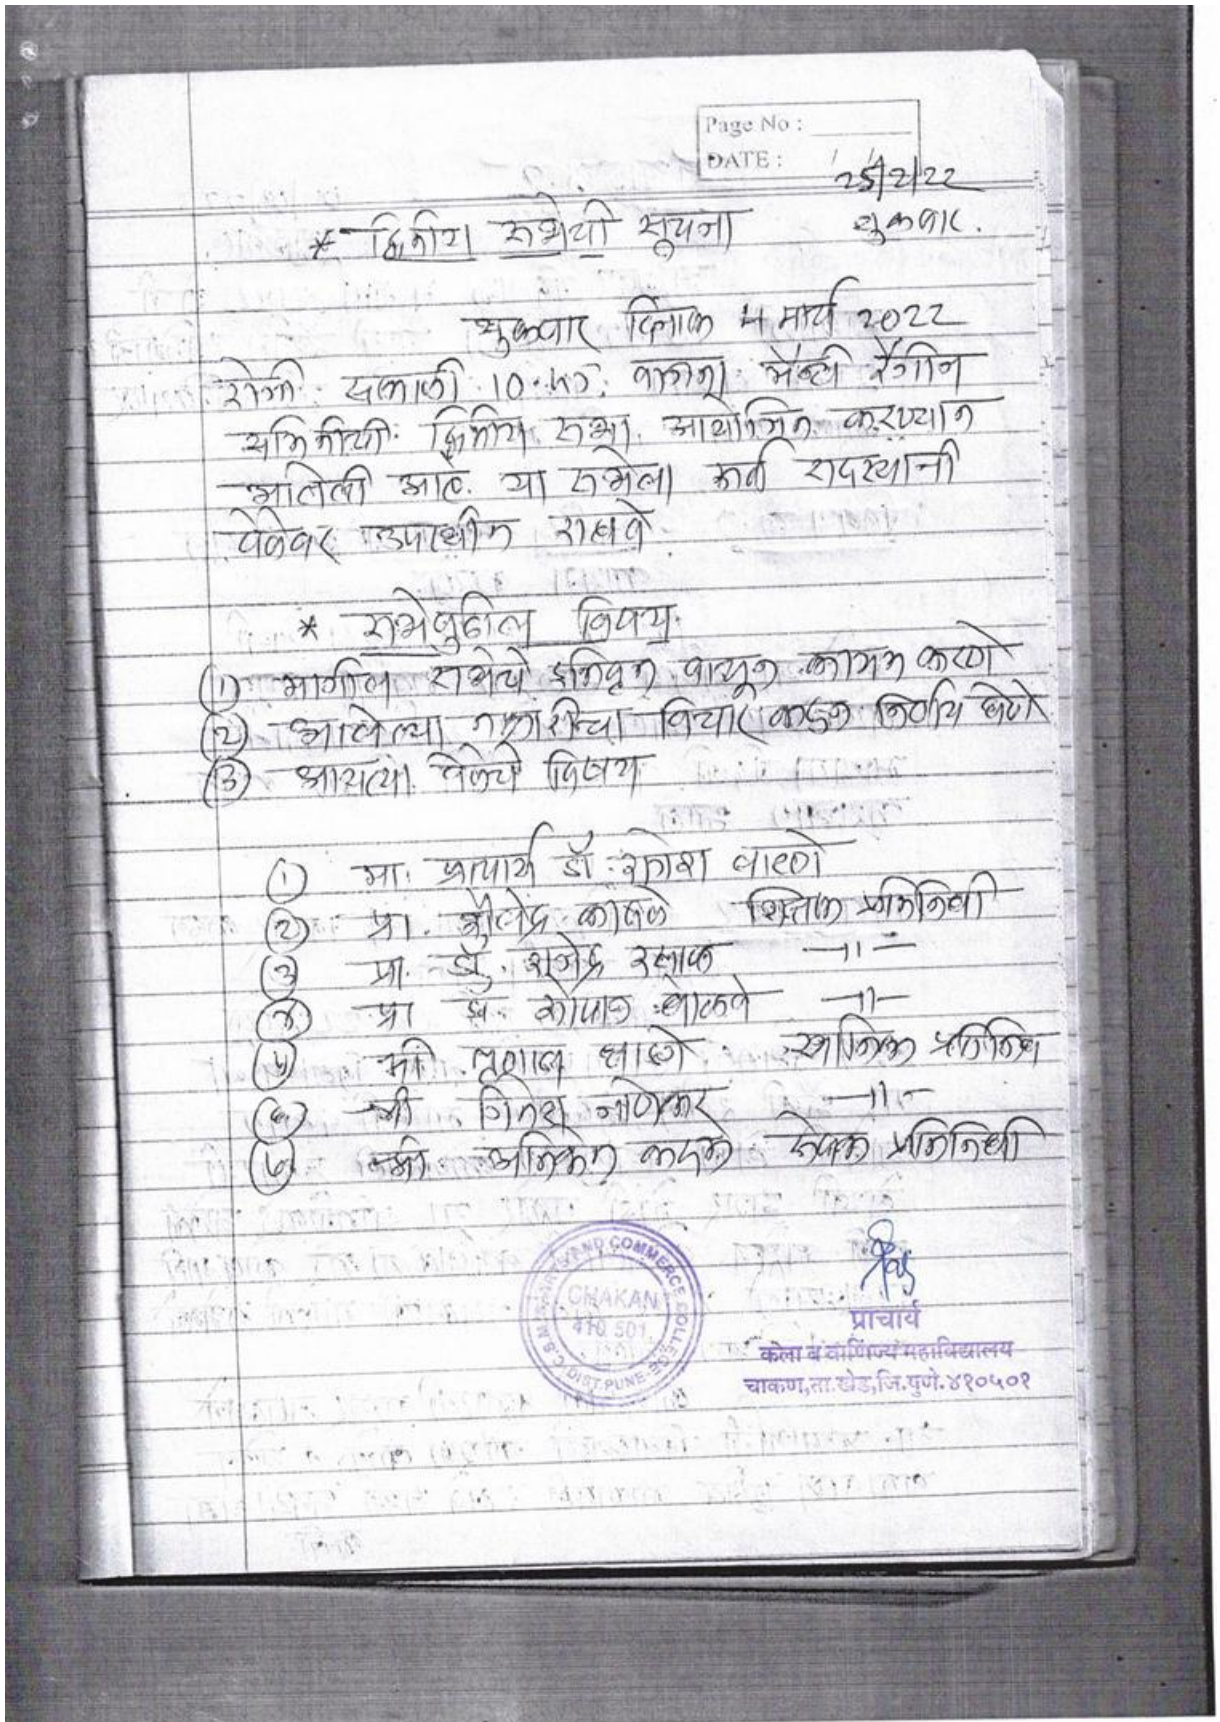 Page No :
DATE :
25/2/22
* द्वितीय सभेची सूचना शुक्रवार.
शुक्रवार दिनांक 4 मार्च 2022
रोजी सकाळी 10.45 वाजता अँन्टी रँगींग
समितीची द्वितीय सभा आयोजित करण्यात
आलेली आहे. या सभेला सर्व सदस्यांनी
वेळेवर उपस्थीत राहावे
* सभेपुढील विषय
(1) मागील सभेचे इतिवृत्त वाचून कायम करणे
(2) आलेल्या तक्रारींचा विचार करुन निर्णय घेणे
(3) आयत्या वेळेचे विषय
(1) मा. प्राचार्य डॉ. राजेश लाटणे
(2) प्रा. शैलेंद्र कांबळे शिक्षक प्रतिनिधी
(3) प्रा. डॉ. राजेंद्र —॥—
(४) प्रा —॥—
(५) श्री स्थानिक प्रतिनिधी
(६) श्री —॥—
(७) श्री अनिकेत प्रतिनिधी
ARTS AND COMMERCE COLLEGE
CHAKAN
410 501
DIST-PUNE
प्राचार्य
कला व वाणिज्य महाविद्यालय
चाकण,ता.खेड,जि.पुणे.४१०५०१